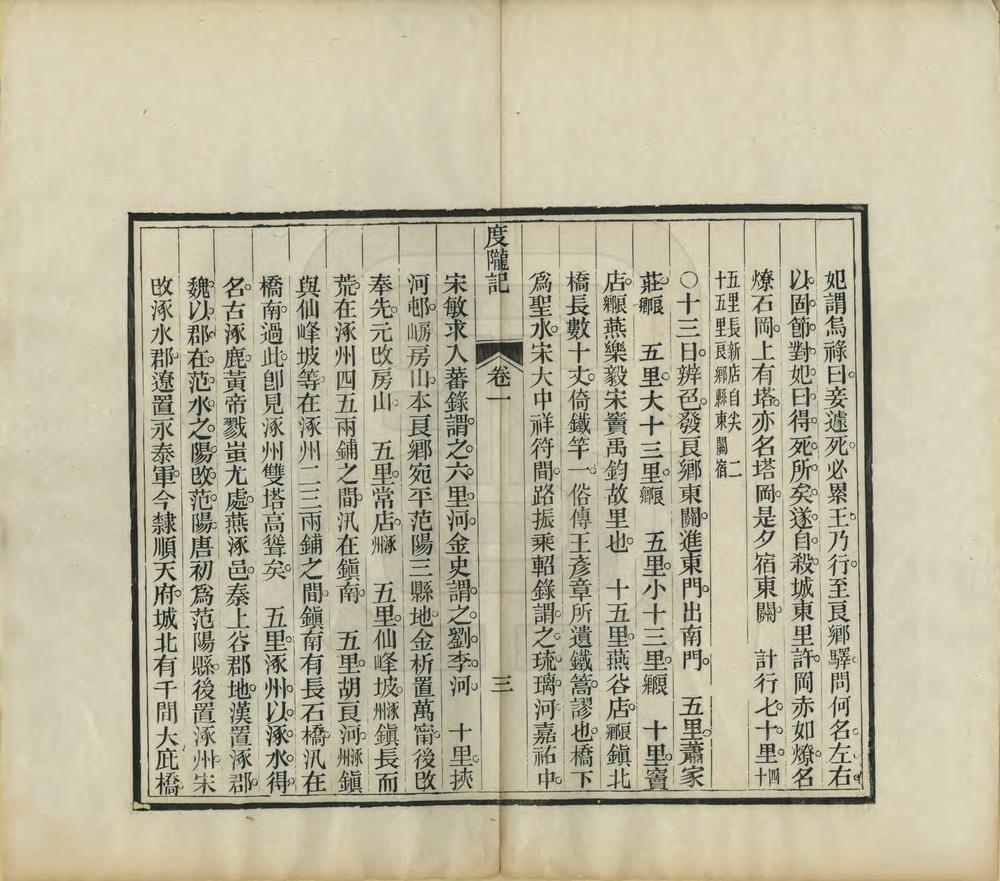 妃謂爲祿曰妾遽死必累王乃行至良鄉驛問何名左右
以固節對妃曰得死所矣遂自殺城東里許岡赤如燎名
燎石岡上有塔亦名塔岡是夕宿東關　計行七十里四十
五里長新店自尖二
十五里良鄉縣東關宿
○十三日辨色發良鄉東關進東門出南門　五里蕭家
莊良鄉　五里大十三里良鄉　五里小十三里良鄉　十里竇
店良鄉燕樂毅宋竇禹鈞故里也　十五里燕谷店良鄉鎮北
橋長數十丈倚鐵竿一俗傳王彥章所遺鐵篙謬也橋下
爲聖水宋大中祥符間路振乘軺錄謂之琉璃河嘉祐中
度隴記　卷一　三
宋敏求入蕃錄謂之六里河金史謂之劉李河　十里挾
河邨房山房山本良鄉宛平范陽三縣地金析置萬甯後改
奉先元改房山　五里常店涿州　五里仙峰坡涿州鎮長而
荒在涿州四五兩鋪之間汛在鎮南　五里胡良河涿州鎮
與仙峰坡等在涿州二三兩鋪之間鎮南有長石橋汛在
橋南過此卽見涿州雙塔高聳矣　五里涿州以涿水得
名古涿鹿黃帝戮蚩尤處燕涿邑秦上谷郡地漢置涿郡
魏以郡在范水之陽改范陽唐初爲范陽縣後置涿州宋
改涿水郡遼置永泰軍今隸順天府城北有千間大庇橋